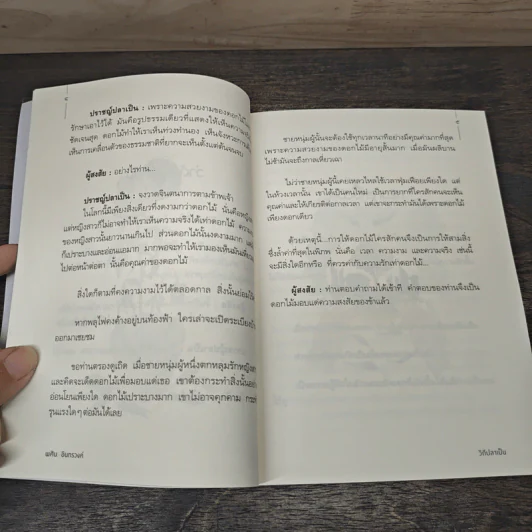 ปราชญ์ปลาเป็น : เพราะความสวยงามของดอกไม้
รักษาเอาไว้ได้ มันคือรูปธรรมเดียวที่แสดงให้เห็นความ
ชัดเจนสุด ดอกไม้ทำให้เราเห็นท่วงทำนอง เห็นจังหวะ
การเคลื่อนตัวของธรรมชาติที่ยากจะเห็นตั้งแต่ต้นจนจบ
ผู้สงสัย : อย่างไรท่าน...
ปราชญ์ปลาเป็น : จงวาดจินตนาการตามข้าพเจ้า
ในโลกนี้มีเพียงสิ่งเดียวที่งดงามกว่าดอกไม้ นั่นคือหญิง
แต่หญิงสาวก็ไม่อาจทำให้เราเห็นความจริงได้เท่าดอกไม้
ของหญิงสาวนั้นยาวนานเกินไป ส่วนดอกไม้นั้นงดงามมาก
ก็เปราะบางและอ่อนแอมาก มากพอจะทำให้เรามองเห็นมัน
ไปต่อหน้าต่อตา นั่นคือคุณค่าของดอกไม้
สิ่งใดก็ตามที่คงความงามไว้ได้ตลอดกาล สิ่งนั้นย่อม
หากพลุไฟคงค้างอยู่บนท้องฟ้า ใครเล่าจะเปิดระเบียง
ออกมาเชยชม
ขอท่านตรองดูเถิด เมื่อชายหนุ่มผู้หนึ่งตกหลุมรักหญิง
และคิดจะเด็ดดอกไม้เพื่อมอบแด่เธอ เขาต้องกระทำสิ่งนั้น
อ่อนโยนเพียงใด ดอกไม้เปราะบางมาก เขาไม่อาจคุกคาม
รุนแรงใดๆ ต่อมันได้เลย
ชายหนุ่มผู้นั้นจะต้องใช้ทุกเวลานาทีอย่างมีคุณค่ามากที่สุด
เพราะความสวยงามของดอกไม้มีอายุสั้นมาก เมื่อมันผลิบาน
ไม่ช้ามันจะถึงกาลเหี่ยวเฉา
ไม่ว่าชายหนุ่มผู้นี้เคยเหลวไหลใช้เวลาฟุ่มเฟือยเพียงใด แต่
ในห้วงเวลานั้น เขาได้เป็นคนใหม่ เป็นการยากที่ใครสักคนจะเห็น
คุณค่าและให้เกียรติต่อกาลเวลา แต่เขาจะกระทำมันได้เพราะดอกไม้
เพียงดอกเดียว
ด้วยเหตุนี้...การให้ดอกไม้ใครสักคนจึงเป็นการให้สามสิ่ง
ซึ่งล้ำค่าที่สุดในพิภพ นั่นคือ เวลา ความงาม และความจริง เช่นนี้
จะมีสิ่งใดอีกหรือ ที่ควรค่ากับความรักเท่าดอกไม้...
ผู้สงสัย : ท่านตอบคำถามได้เข้าที คำตอบของท่านจึงเป็น
ดอกไม้มอบแด่ความสงสัยของข้าแล้ว
วิถีปลาเป็น